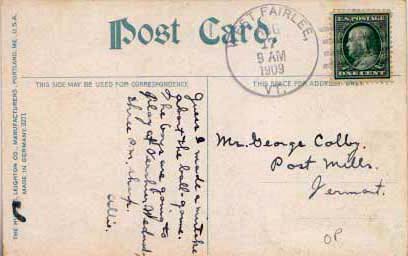 Post Card.
WEST FAIRLEE,
17
9 AM
1909
VT.
U.S. POSTAGE
ONE CENT
THIS SIDE MAY BE USED FOR CORRESPONDENCE
THIS SPACE FOR ADDRESS ONLY.
THE LEIGHTON CO., MANUFACTURERS, PORTLAND, ME., U.S.A.
MADE IN GERMANY 3271
Guess I made a mistake
about the ball game.
The boys are going to
play at Fairlee, Wednes.
three P.M. sharp.
Allis.
Mr. George Colby.
Post Mills.
Vermont.
OP